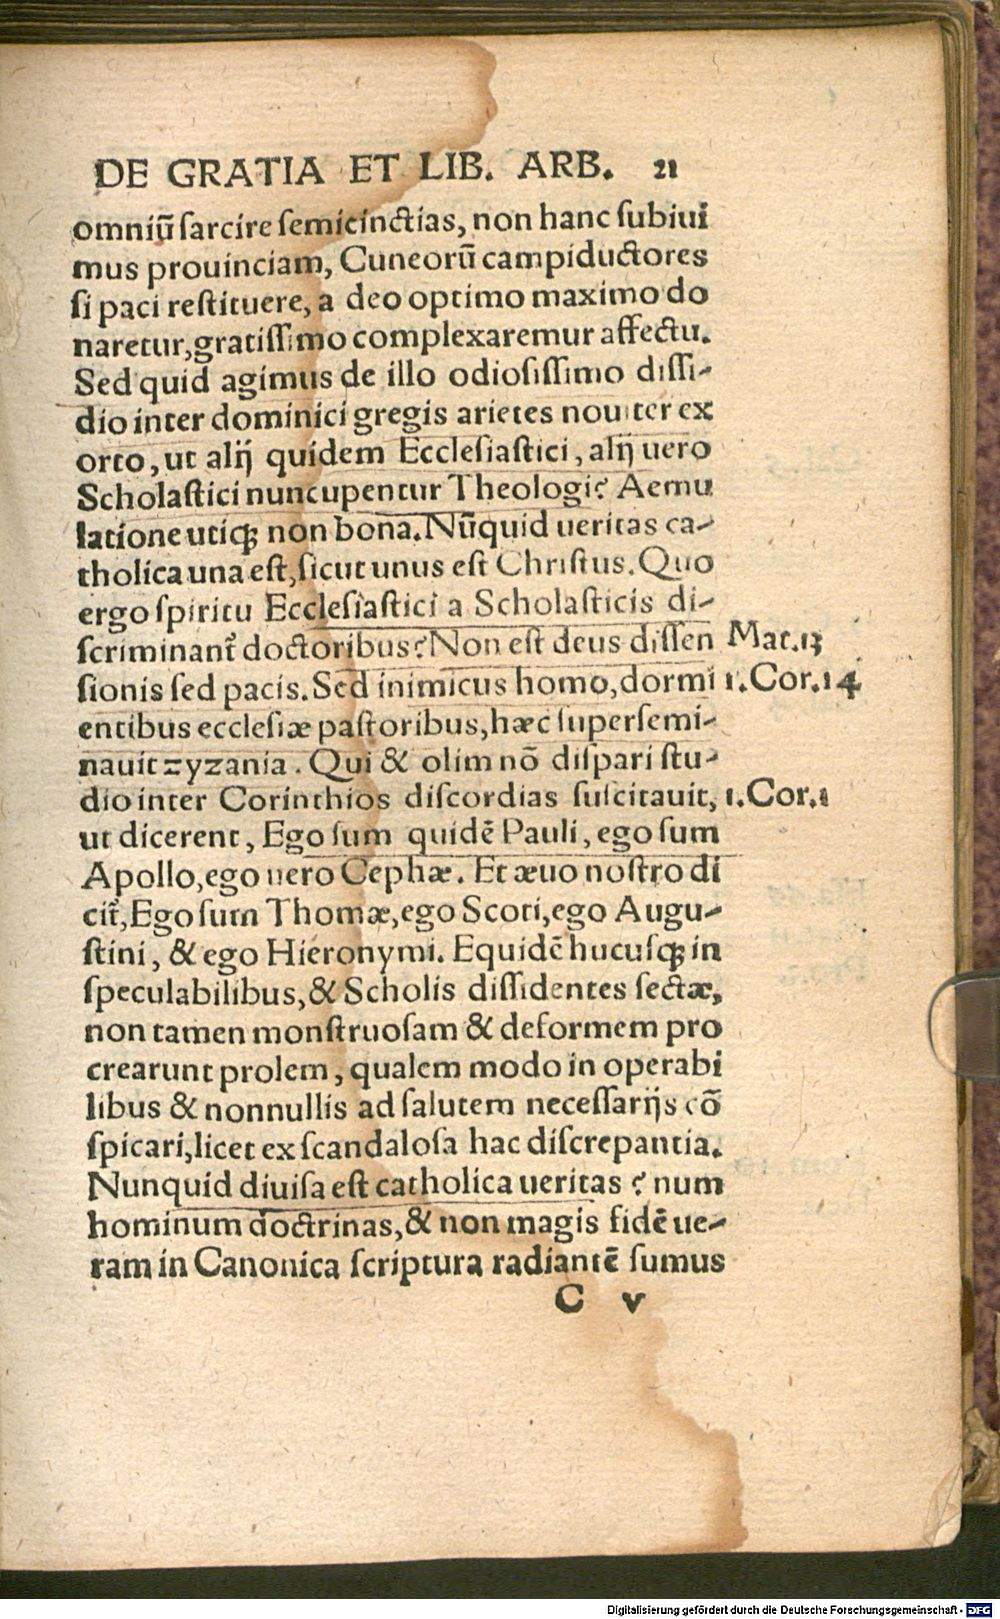 DE GRATIA ET LIB. ARB. 21
omniū ſarcire ſemicinctias, non hanc ſubiui
mus prouinciam, Cuneorū campiductores
ſi paci reſtituere, a deo optimo maximo do
naretur, gratiſſimo complexaremur affectu.
Sed quid agimus de illo odioſiſſimo diſſi-
dio inter dominici gregis arietes nouiter ex
orto, ut alij quidem Eccleſiaſtici, alij uero
Scholaſtici nuncupentur Theologi? Aemu
latione utiqꝫ non bona. Nūquid ueritas ca-
tholica una eſt, ſicut unus eſt Chriſtus. Quo
ergo ſpiritu Eccleſiaſtici a Scholaſticis di-
ſcriminant᷑ doctoribus? Non eſt deus diſſen Mat.13
ſionis ſed pacis. Sed inimicus homo, dormi 1.Cor.14
entibus eccleſiæ paſtoribus, hæc ſuperſemi-
nauit zyzania. Qui & olim nō diſpari ſtu-
dio inter Corinthios diſcordias ſuſcitauit, 1.Cor.1
ut dicerent, Ego ſum quidē Pauli, ego ſum
Apollo, ego uero Cephæ. Et æuo noſtro di
cit᷑, Ego ſum Thomæ, ego Scoti, ego Augu-
ſtini, & ego Hieronymi. Equidē hucuſqꝫ in
ſpeculabilibus, & Scholis diſſidentes ſectæ,
non tamen monſtruoſam & deformem pro
crearunt prolem, qualem modo in operabi
libus & nonnullis ad ſalutem neceſſarijs cō
ſpicari, licet ex ſcandaloſa hac diſcrepantia.
Nunquid diuiſa eſt catholica ueritas? num
hominum doctrinas, & non magis fidē ue-
ram in Canonica ſcriptura radiantē ſumus
C v
Digitalisierung gefördert durch die Deutsche Forschungsgemeinschaft - DFG